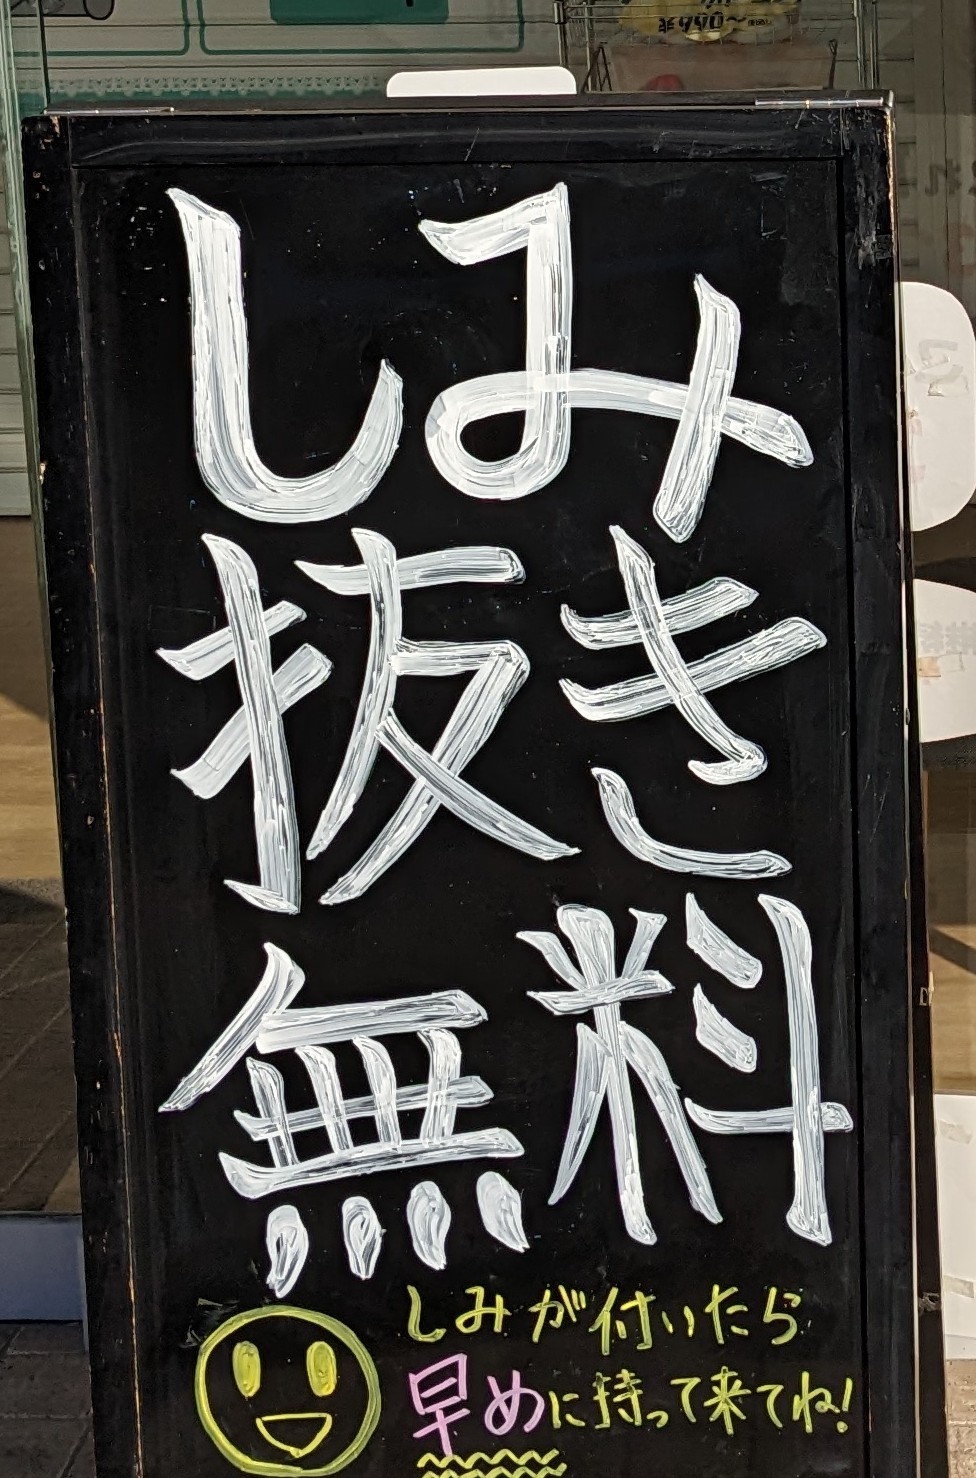 しみ
抜き
無料
しみが付いたら
早めに持って来てね!